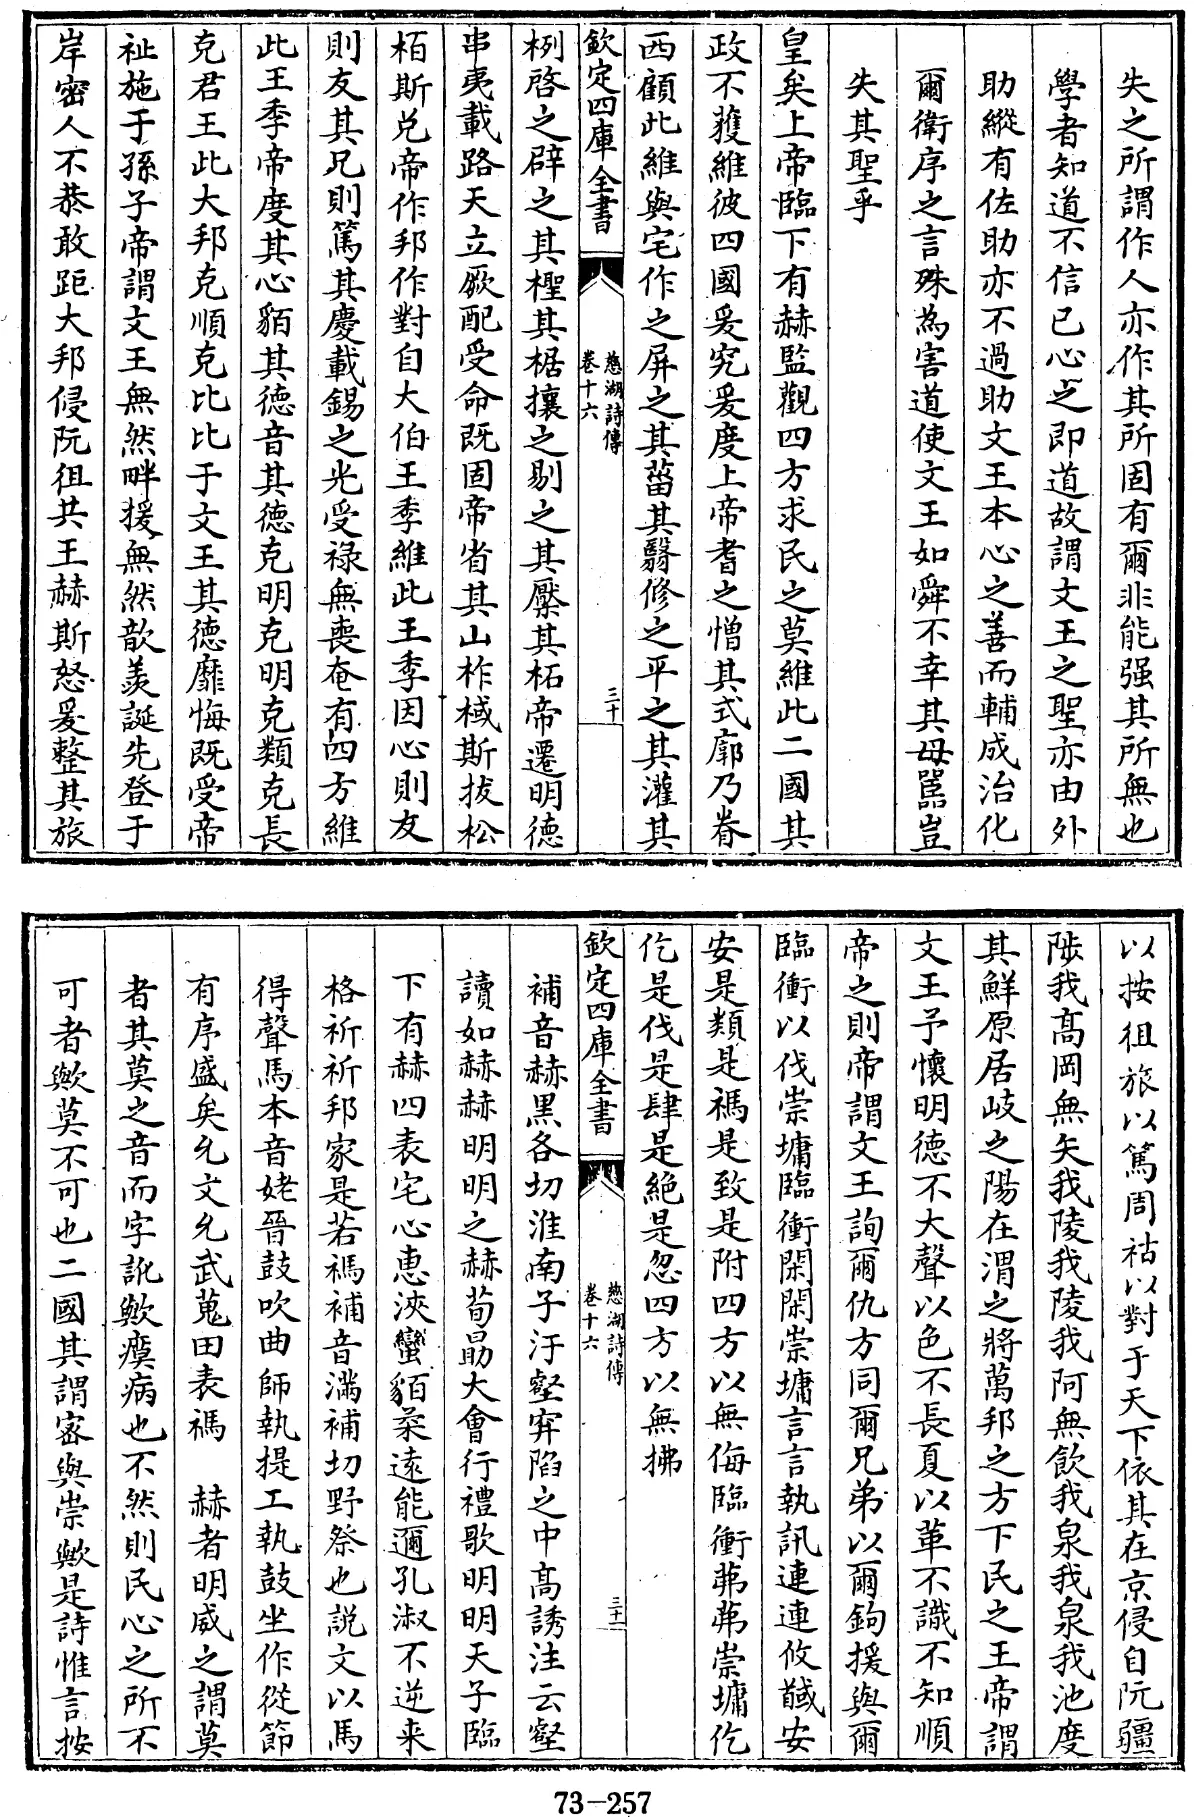 失之所謂作人亦作其所固有爾非能强其所無也
學者知道不信已心之即道故謂文王之聖亦由外
助縱有佐助亦不過助文王本心之善而輔成治化
爾衛序之言殊為害道使文王如舜不幸其母嚚豈
失其聖乎
皇矣上帝臨下有赫監觀四方求民之莫維此二國其
政不獲維彼四國爰究爰度上帝耆之憎其式廓乃眷
西顧此維與宅作之屏之其菑其翳修之平之其灌其
欽定四庫全書
慈湖詩傳
卷十六
三十
栵啓之辟之其檉其椐攘之剔之其檿其柘帝遷明德
串夷載路天立厥配受命既固帝省其山柞棫斯拔松
栢斯兌帝作邦作對自大伯王季維此王季因心則友
則友其兄則篤其慶載錫之光受祿無喪奄有四方維
此王季帝度其心貊其德音其德克明克明克類克長
克君王此大邦克順克比比于文王其德靡悔既受帝
祉施于孫子帝謂文王無然畔援無然歆羨誕先登于
岸密人不恭敢距大邦侵阮徂共王赫斯怒爰整其旅
以按徂旅以篤周祜以對于天下依其在京侵自阮疆
陟我高岡無矢我陵我陵我阿無飲我泉我泉我池度
其鮮原居岐之陽在渭之將萬邦之方下民之王帝謂
文王予懷明德不大聲以色不長夏以革不識不知順
帝之則帝謂文王詢爾仇方同爾兄弟以爾鉤援與爾
臨衝以伐崇墉臨衝閑閑崇墉言言執訊連連攸馘安
安是類是禡是致是附四方以無侮臨衝茀茀崇墉仡
仡是伐是肆是絶是忽四方以無拂
欽定四庫全書
慈湖詩傳
卷十六
三十一
補音赫黑各切淮南子汙壑穽陷之中高誘注云壑
讀如赫赫明明之赫荀勗大會行禮歌明明天子臨
下有赫四表宅心惠浹蠻貊柔遠能邇孔淑不逆来
格祈祈邦家是若禡補音滿補切野祭也説文以馬
得聲馬本音姥晉鼓吹曲師執提工執鼓坐作從節
有序盛矣允文允武蒐田表禡 赫者明威之謂莫
者其莫之音而字訛歟瘼病也不然則民心之所不
可者歟莫不可也二國其謂密與崇歟是詩惟言按
73-257